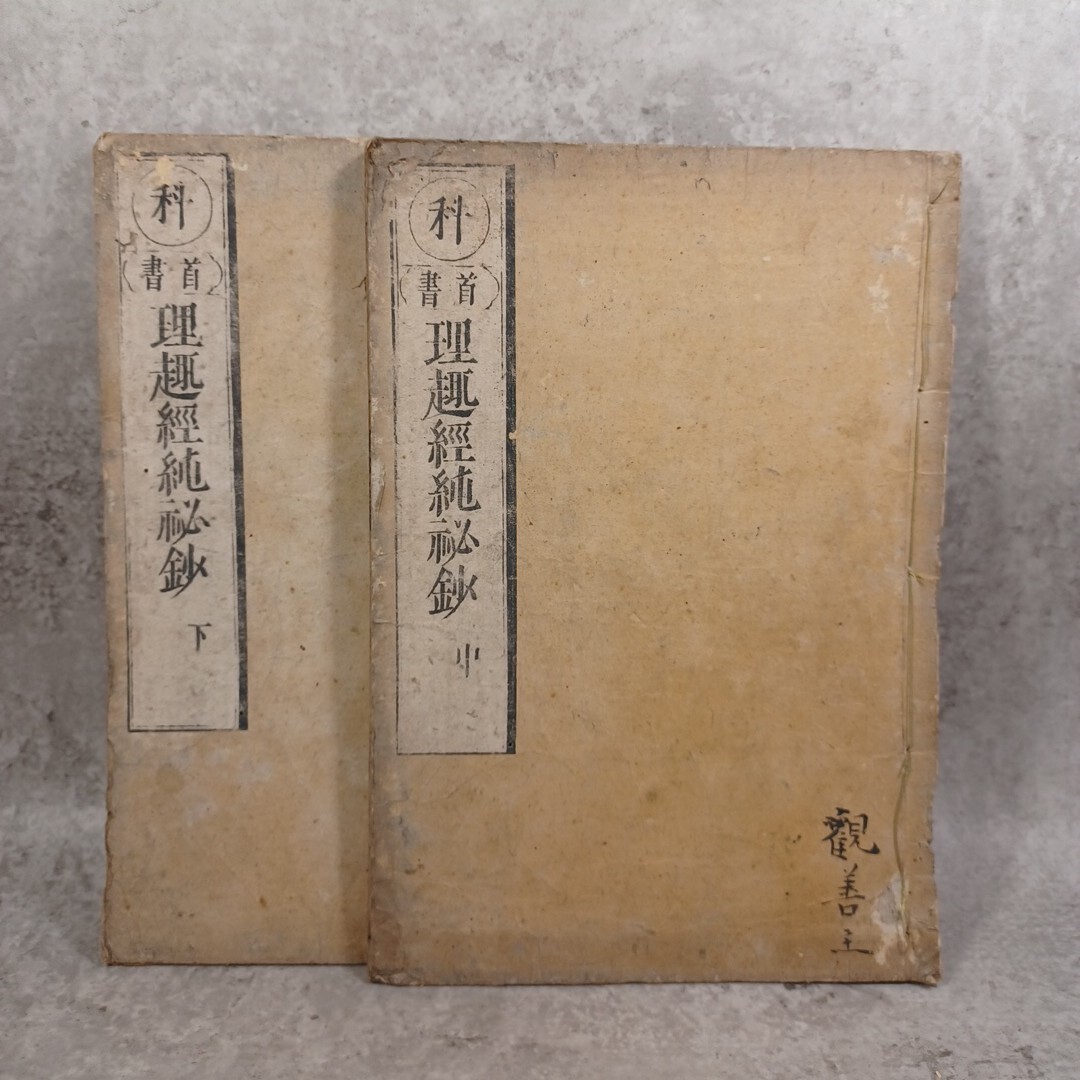 科
首書
理趣經純祕鈔
下
科
首書
理趣經純祕鈔
中
觀善主